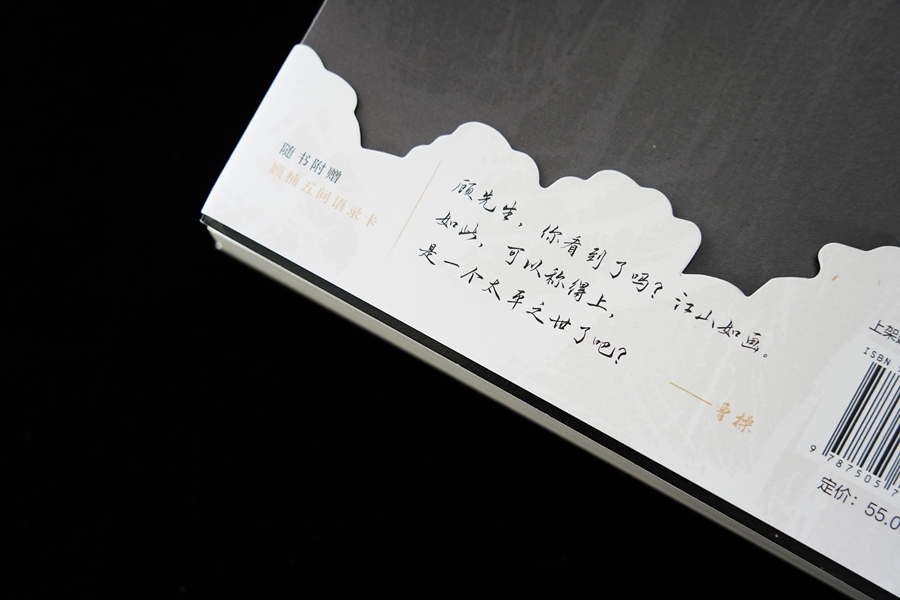 随书附赠
顾植五问语录卡
顾先生，你看到了吗？江山如画。
如此，可以称得上，
是一个太平之世了吧？
——曹操
上架
ISBN
9 787505 7
定价：55.0